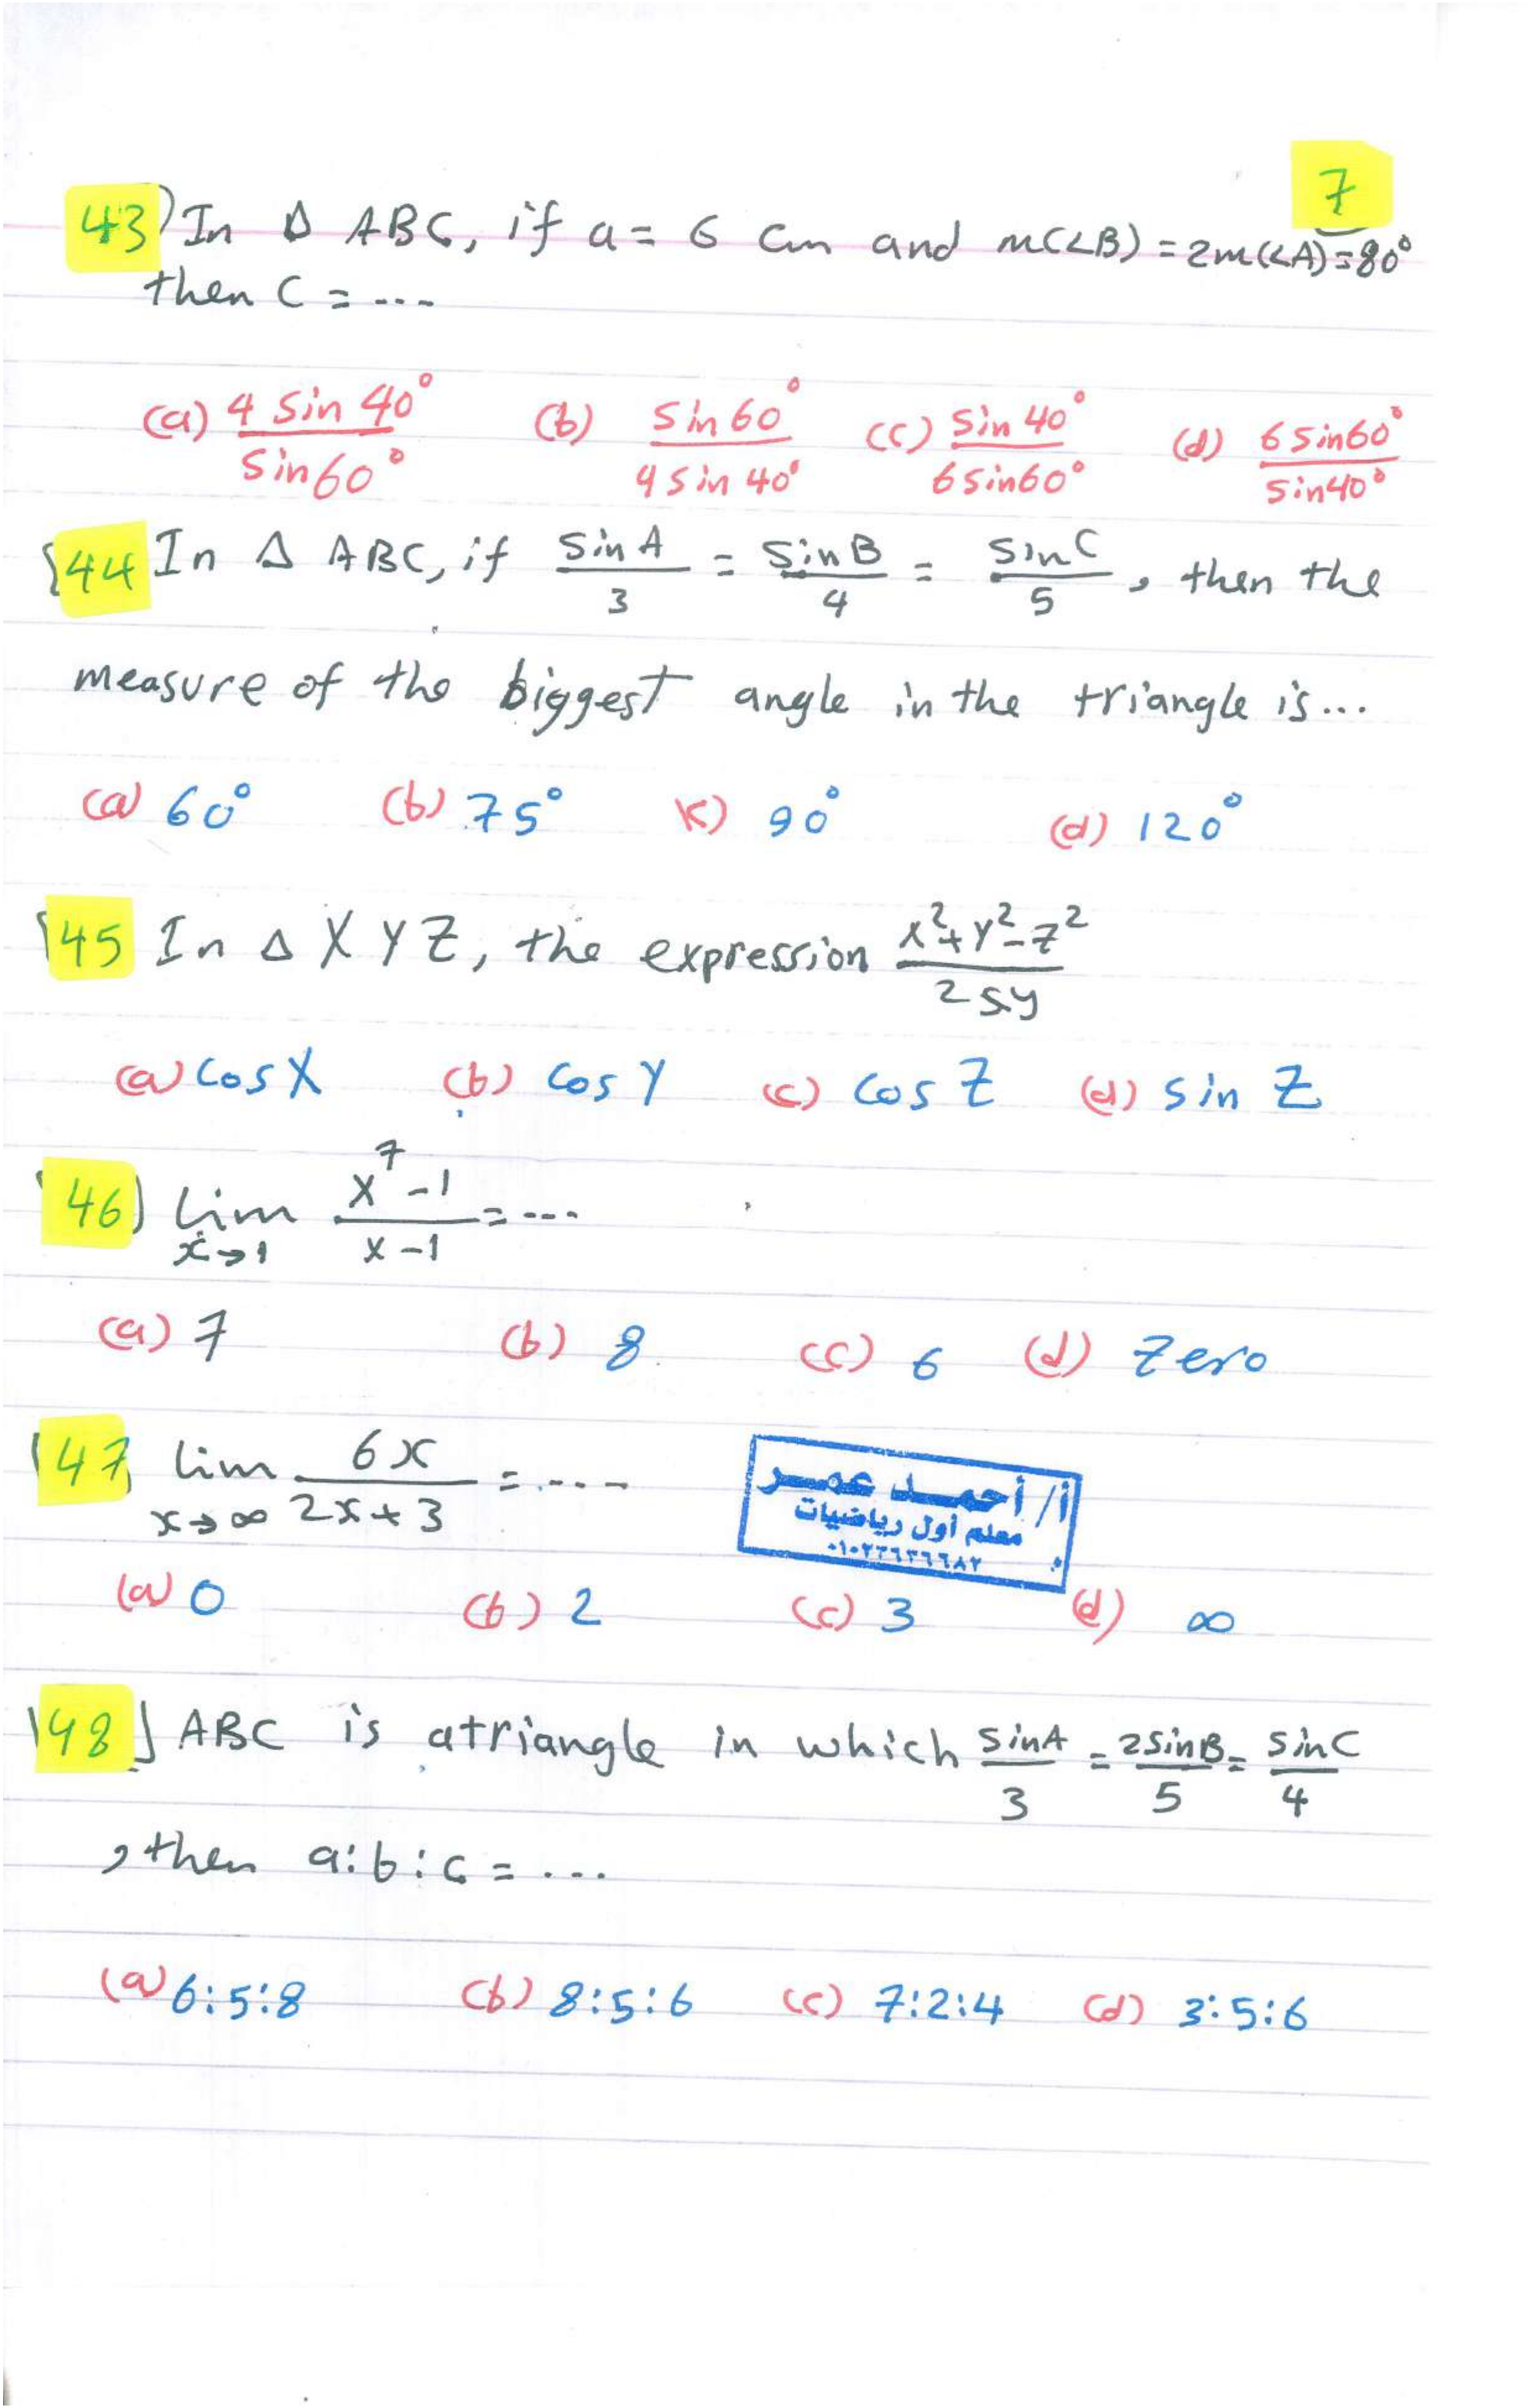 7
43) In Δ ABC, if a = 6 cm and m(∠B) = 2m(∠A) = 80°
then c = ...
(a) 4 sin 40° / sin 60° (b) sin 60° / 4 sin 40° (c) sin 40° / 6 sin 60° (d) 6 sin 60° / sin 40°
44 In Δ ABC, if sin A / 3 = sin B / 4 = sin C / 5, then the
measure of the biggest angle in the triangle is...
(a) 60° (b) 75° (c) 90° (d) 120°
45 In Δ XYZ, the expression x² + y² - z² / 2xy
(a) cos X (b) cos Y (c) cos Z (d) sin Z
46) lim x→1 x⁷ - 1 / x - 1 = ...
(a) 7 (b) 8 (c) 6 (d) Zero
47 lim x→∞ 6x / 2x + 3 = ...
أ/ أحمد عمر
معلم أول رياضيات
٠١٠٢٢٦٣٦٦٨٢
(a) 0 (b) 2 (c) 3 (d) ∞
48) ABC is atriangle in which sin A / 3 = 2 sin B / 5 = sin C / 4
, then a:b:c = ...
(a) 6:5:8 (b) 8:5:6 (c) 7:2:4 (d) 3:5:6